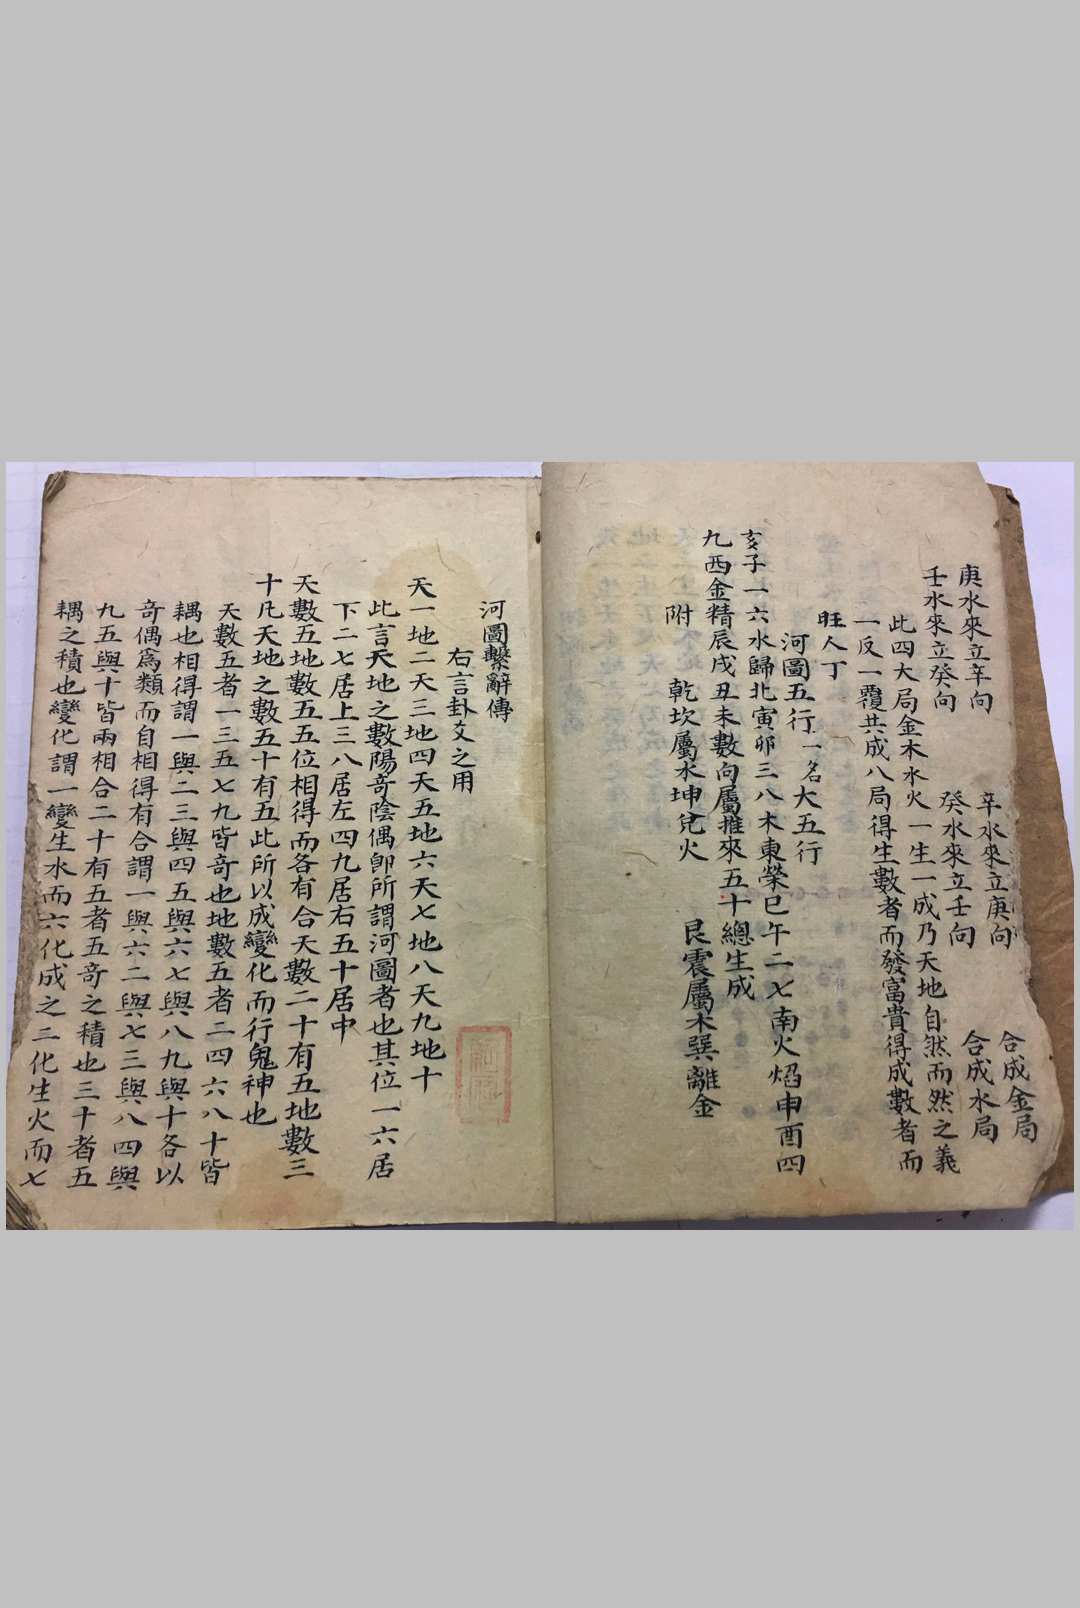 庚水來立辛向 辛水來立庚向 合成金局
壬水來立癸向 癸水來立壬向 合成水局
此四大局金木水火一生一成乃天地自然而然之義
一反一覆共成八局得生數者而發富貴得成數者而
旺人丁
河圖五行一名大五行
亥子一六水歸北寅卯三八木東榮巳午二七南火焰申酉四
九西金精辰戌丑未數向屬推來五十總生成
附 乾坎屬水坤兌火 艮震屬木巽離金
河圖繫辭傳
右言卦爻之用
天一地二天三地四天五地六天七地八天九地十
此言天地之數陽奇陰偶卽所謂河圖者也其位一六居
下二七居上三八居左四九居右五十居中
天數五地數五五位相得而各有合天數二十有五地數三
十凡天地之數五十有五此所以成變化而行鬼神也
天數五者一三五七九皆奇也地數五者二四六八十皆
耦也相得謂一與二三與四五與六七與八九與十各以
奇偶爲類而自相得有合謂一與六二與七三與八四與
九五與十皆兩相合二十有五者五奇之積也三十者五
耦之積也變化謂一變生水而六化成之二化生火而七